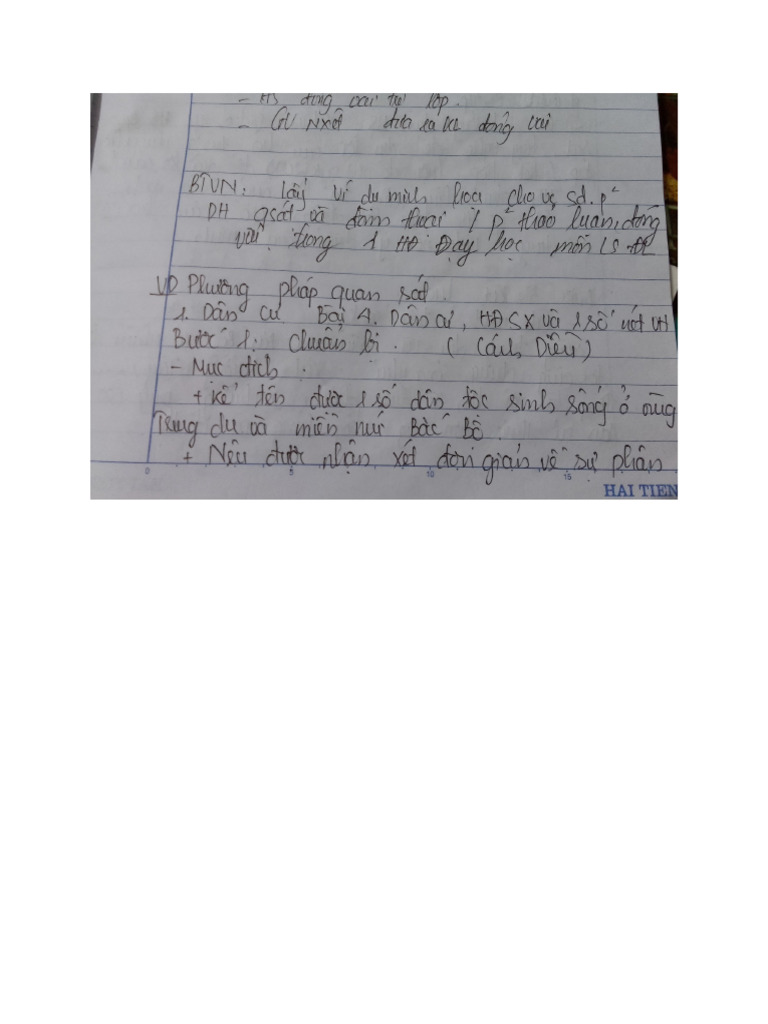 - HS đóng vai tại lớp.
- GV NXét đưa ra KL đóng vai
BTVN: Lấy ví dụ minh họa cho vc sd. p²
DH qsát và đàm thoại / p² thảo luận, đóng
vai. trong 1 HĐ Dạy học môn LS ĐL
VD Phương pháp quan sát
1. Dân cư Bài 4. Dân cư, HĐSX và 1 số nét VH
Bước 1: Chuẩn bị. (Cánh Diều)
- Mục đích.
+ Kể tên được 1 số dân tộc sinh sống ở vùng
Trung du và miền núi Bắc Bộ.
+ Nêu được nhận xét đơn giản về sự phân
0 5 10 15
HAI TIEN